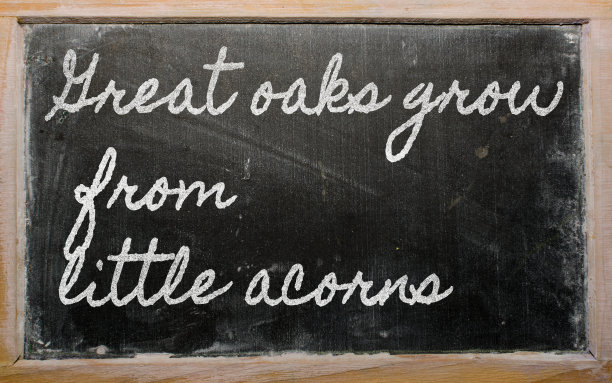 Great oaks grow
from
little acorns